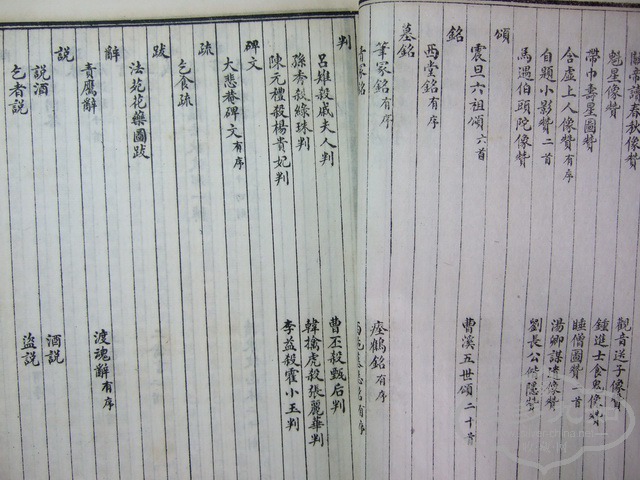 魁星像贊
帶巾壽星圖贊　鍾進士食鬼像贊
合虛上人像贊有序　睡僧圖贊
自題小影贊二首
馬遇伯頭陀像贊
頌
震旦六祖頌六首　曹溪五世頌二十首
銘
西堂銘有序
墓銘
筆冢銘有序　瘞鶴銘有序
判
呂雉殺戚夫人判　曹丕殺甄后判
孫秀殺綠珠判　韓擒虎殺張麗華判
陳元禮殺楊貴妃判　李益殺霍小玉判
碑文
大悲菴碑文有序
疏
乞食疏
跋
法苑花藥圖跋
辭
責鷹辭　渡魂辭有序
説
説酒　酒説
乞者説　盜説